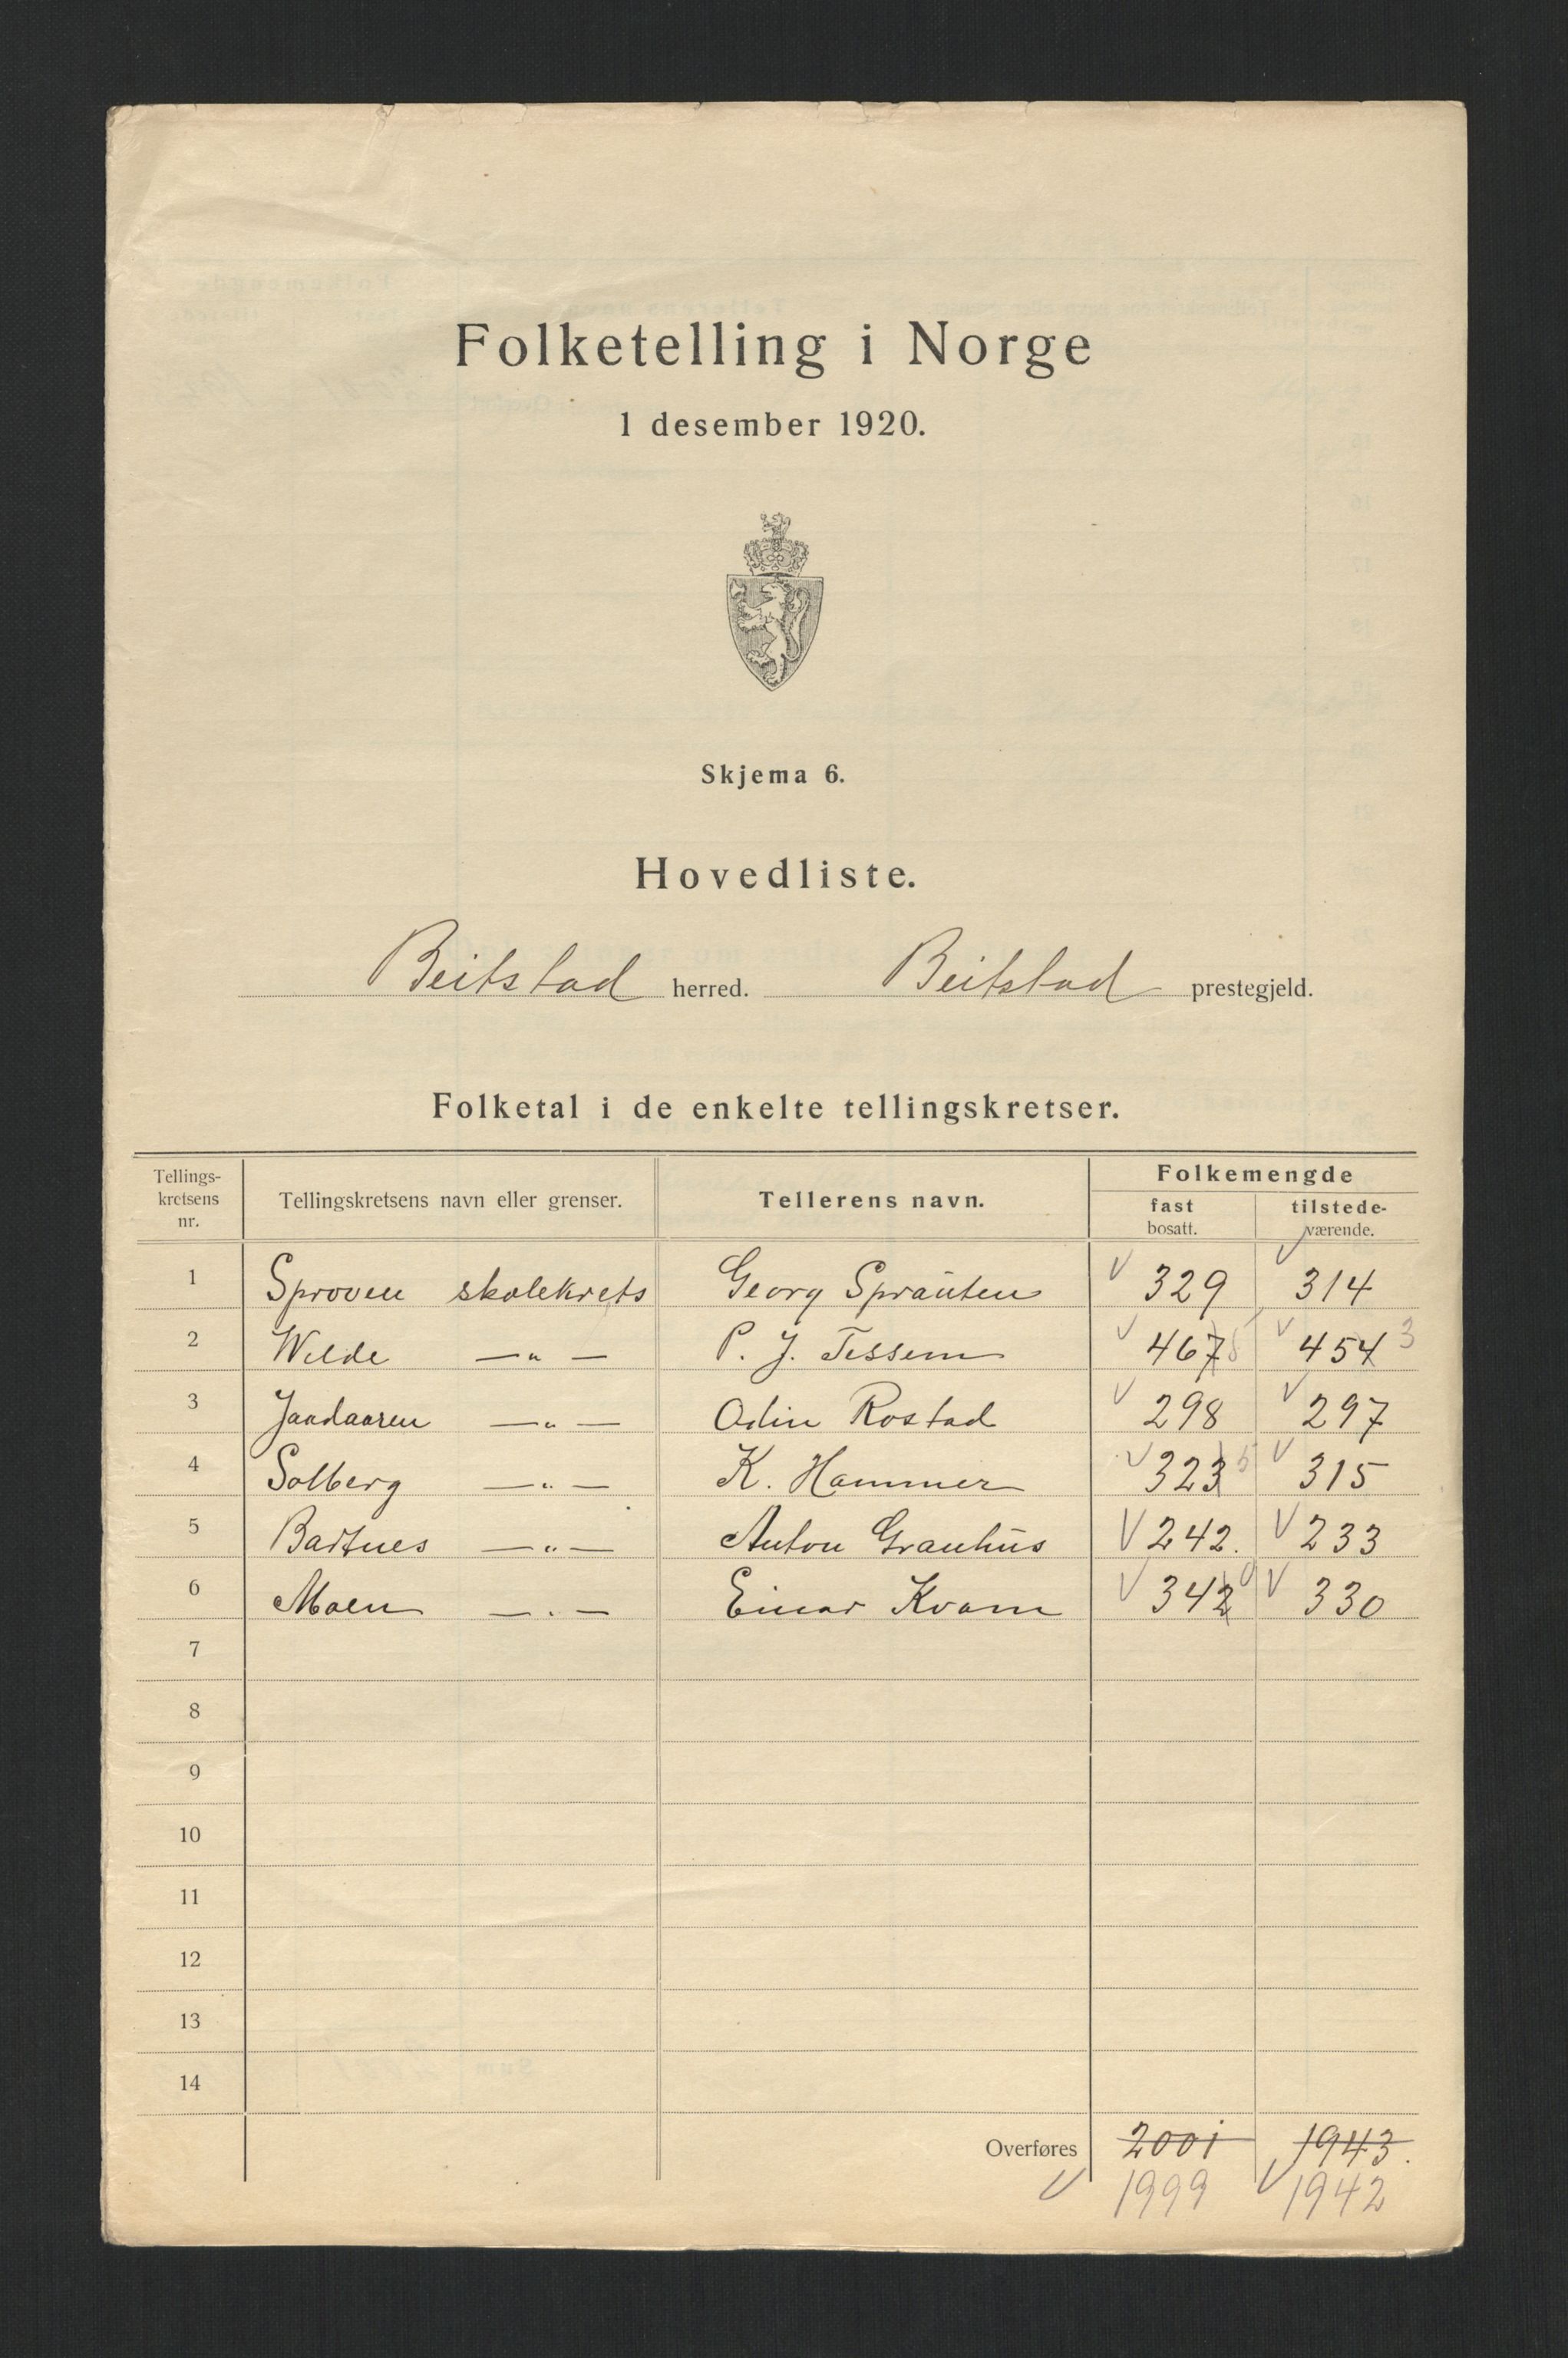 Folketelling i Norge
1 desember 1920.
Skjema 6.
Hovedliste.
Beitstad herred. Beitstad prestegjeld.
Folketal i de enkelte tellingskretser.
Tellings-
kretsens
nr.
Tellingskretsens navn eller grenser.
Tellerens navn.
Folkemengde
fast
bosatt.
tilstede-
værende.
1 Sproven skolekrets Georg Spraüten √ 329 √ 314
2 Welde —"— P. J. Tessem √ 467 5 √ 454 3
3 Jaadaaren —"— Odin Rostad √ 298 √ 297
4 Solberg —"— K. Hammer √ 323 5 √ 315
5 Bartnes —"— Anton Granhüs √ 242. √ 233
6 Moen —"— Einar Kvam √ 342 0 √ 330
7
8
9
10
11
12
13
14
Overføres 2001 1943.
√ 1999 √ 1942